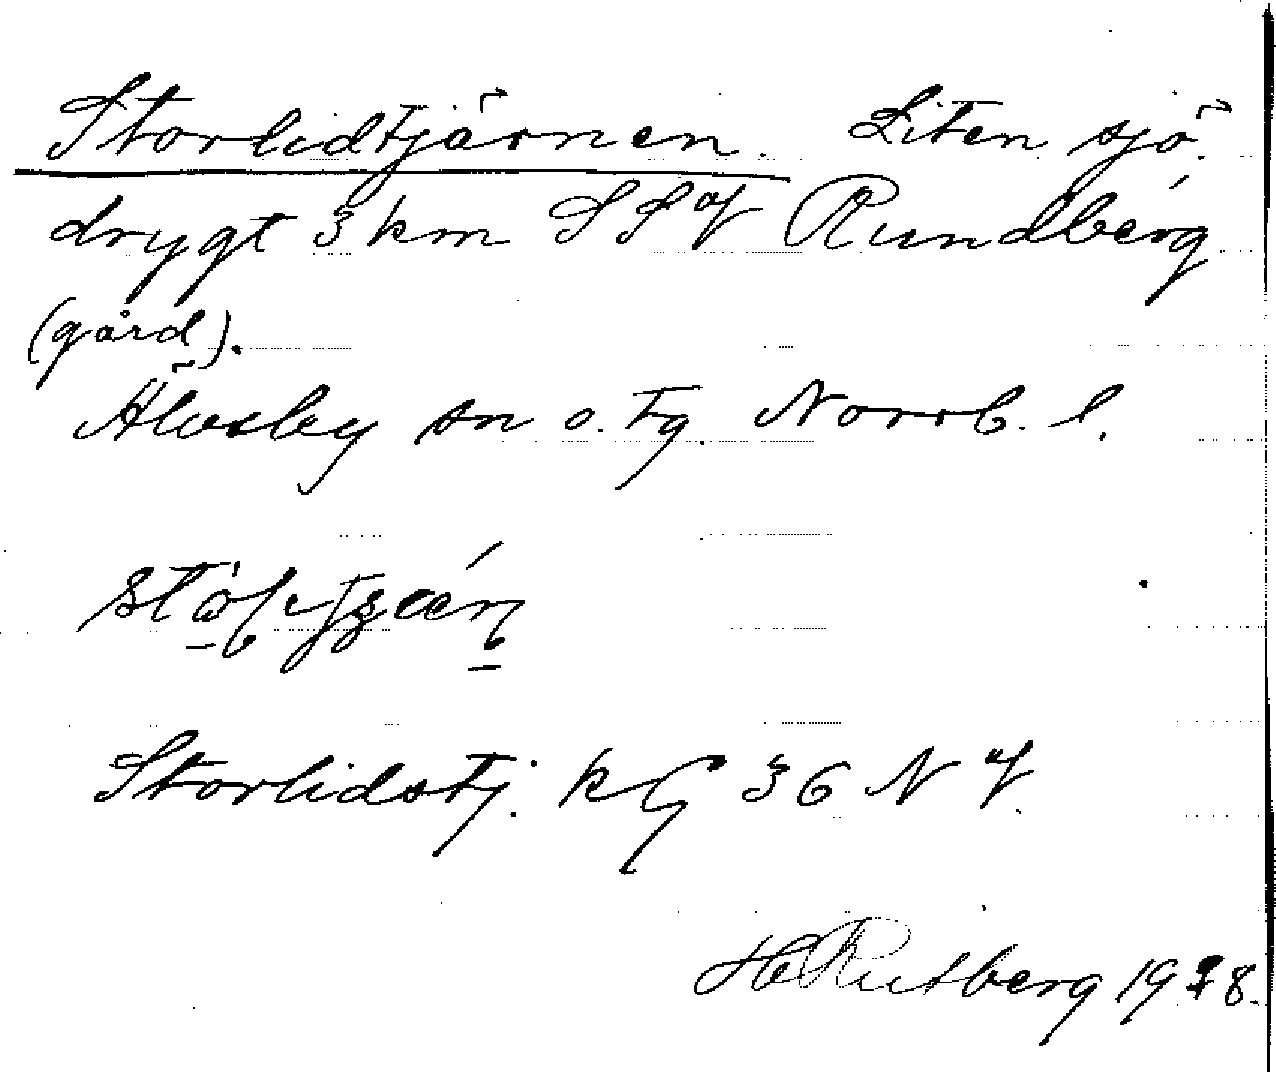 Storlidtjärnen. Liten sjö
drygt 3 km SSV Rundberg
(gård).
Älvsby sn o. tg. Norrb. l.
Storlidstj. kg 36 NV
H Rutberg 1928.